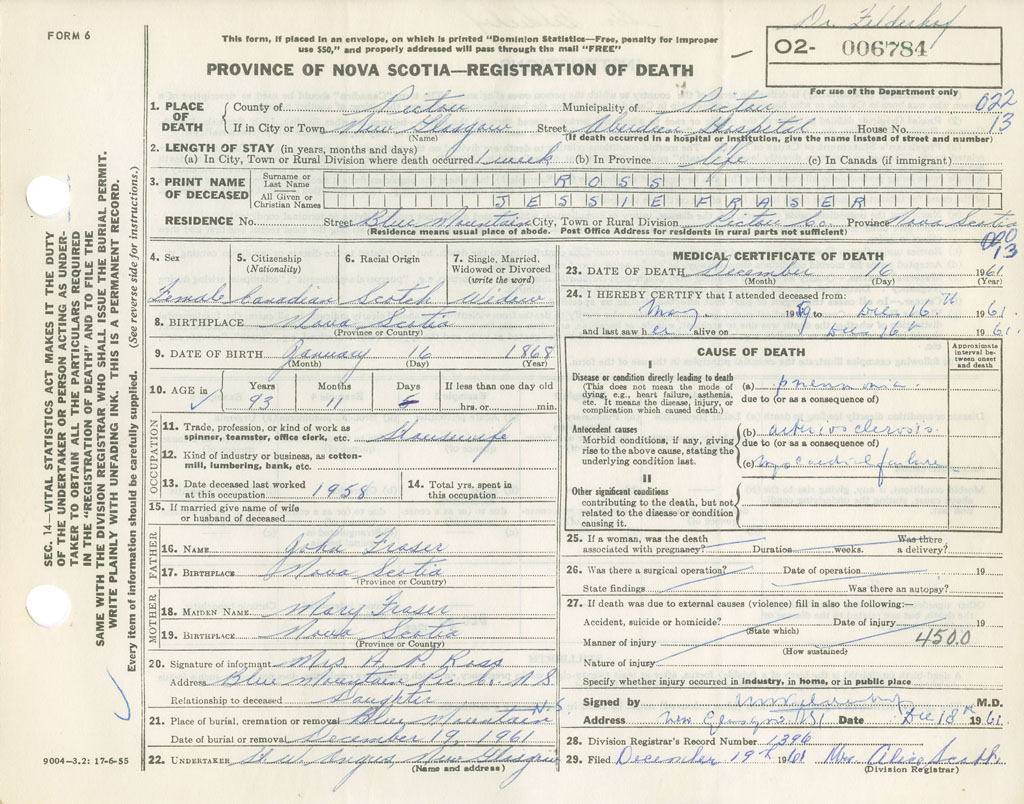 Dr. Felderhof
FORM 6
This form, if placed in an envelope, on which is printed "Dominion Statistics—Free, penalty for improper
use $50," and properly addressed will pass through the mail "FREE"
O2- 006784
PROVINCE OF NOVA SCOTIA—REGISTRATION OF DEATH
For use of the Department only
022
13
1. PLACE OF DEATH County of Pictou Municipality of Pictou
If in City or Town New Glasgow Street Aberdeen Hospital House No.
(Name) (If death occurred in a hospital or institution, give the name instead of street and number)
2. LENGTH OF STAY (in years, months and days)
(a) In City, Town or Rural Division where death occurred 1 week (b) In Province life (c) In Canada (if immigrant)
3. PRINT NAME OF DECEASED Surname or Last Name ROSS
All Given or Christian Names JESSIE FRASER
RESIDENCE No. Street Blue Mountain City, Town or Rural Division Pictou Co Province Nova Scotia
(Residence means usual place of abode. Post Office Address for residents in rural parts not sufficient)
000
13
4. Sex 5. Citizenship (Nationality) 6. Racial Origin 7. Single, Married, Widowed or Divorced (write the word)
Female Canadian Scotch Widow
8. BIRTHPLACE Nova Scotia
(Province or Country)
9. DATE OF BIRTH January 16 1868
(Month) (Day) (Year)
10. AGE in Years Months Days If less than one day old
93 11 hrs. or min.
OCCUPATION
11. Trade, profession, or kind of work as spinner, teamster, office clerk, etc. Housewife
12. Kind of industry or business, as cotton-mill, lumbering, bank, etc.
13. Date deceased last worked at this occupation 1958 14. Total yrs. spent in this occupation
15. If married give name of wife or husband of deceased
FATHER
16. NAME John Fraser
17. BIRTHPLACE Nova Scotia
(Province or Country)
MOTHER
18. MAIDEN NAME Mary Fraser
19. BIRTHPLACE Nova Scotia
(Province or Country)
20. Signature of informant Mrs H. P. Ross
Address Blue Mountain Pic. Co. N S
Relationship to deceased Daughter
21. Place of burial, cremation or removal Blue Mountain N.S.
Date of burial or removal December 19, 1961
22. UNDERTAKER H. W. Angus, New Glasgow
(Name and address)
MEDICAL CERTIFICATE OF DEATH
23. DATE OF DEATH December 16 1961
(Month) (Day) (Year)
24. I HEREBY CERTIFY that I attended deceased from:
May 1959 to Dec 16th 1961
and last saw her alive on Dec 16th 1961
CAUSE OF DEATH
Approximate interval between onset and death
I
Disease or condition directly leading to death
(This does not mean the mode of dying, e.g., heart failure, asthenia, etc. It means the disease, injury, or complication which caused death.)
(a) pneumonia
due to (or as a consequence of)
Antecedent causes
Morbid conditions, if any, giving rise to the above cause, stating the underlying condition last.
(b) arteriosclerosis
due to (or as a consequence of)
(c) myocardial failure
II
Other significant conditions
contributing to the death, but not related to the disease or condition causing it.
25. If a woman, was the death associated with pregnancy? Duration weeks. Was there a delivery?
26. Was there a surgical operation? Date of operation 19
State findings Was there an autopsy?
27. If death was due to external causes (violence) fill in also the following:—
Accident, suicide or homicide? Date of injury 19
(State which)
Manner of injury 450.0
(How sustained)
Nature of injury
Specify whether injury occurred in industry, in home, or in public place
Signed by M.D.
Address New Glasgow NS Date Dec 18th 1961
28. Division Registrar's Record Number 1396
29. Filed December 19th 1961 Mrs. Alice Scott
(Division Registrar)
SEC. 14—VITAL STATISTICS ACT MAKES IT THE DUTY
OF THE UNDERTAKER OR PERSON ACTING AS UNDER-
TAKER TO OBTAIN ALL THE PARTICULARS REQUIRED
IN THE "REGISTRATION OF DEATH" AND TO FILE THE
SAME WITH THE DIVISION REGISTRAR WHO SHALL ISSUE THE BURIAL PERMIT.
WRITE PLAINLY WITH UNFADING INK. THIS IS A PERMANENT RECORD.
Every item of information should be carefully supplied. (See reverse side for instructions.)
9004-3.2: 17-6-55